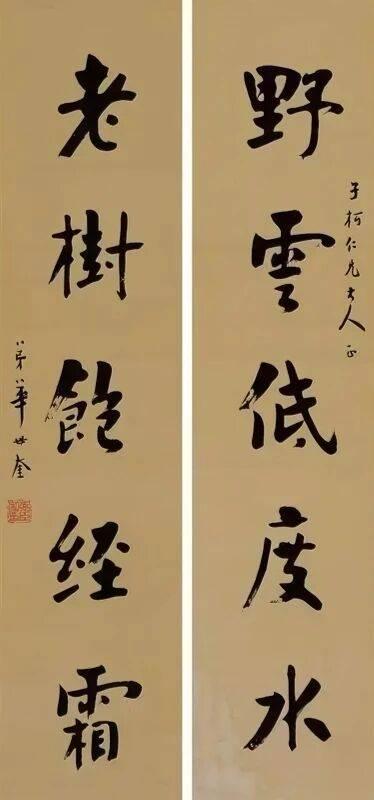 野雲低度水
子柯仁兄大人 正
老樹飽經霜
弟華世奎